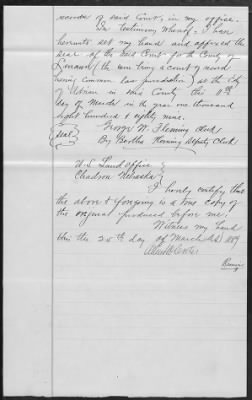 records of said Court, in my office.
In testimony whereof I have
hereunto set my hand and affixed the
seal of the said Court for the County of
Lenawee (the same being a court of record
having common law jurisdiction) at the City
of Adrian in said County this 11th
day of March in the year one thousand
eight hundred & eighty nine.
Seal
George W. Fleming Clerk
By Bertha Fleming Deputy Clerk
U.S. Land office
Chadron Nebraska
I hereby certify that
the above & foregoing is a true copy of
the original produced before me.
Witness my hand
this the 25th day of March A.D. 1889